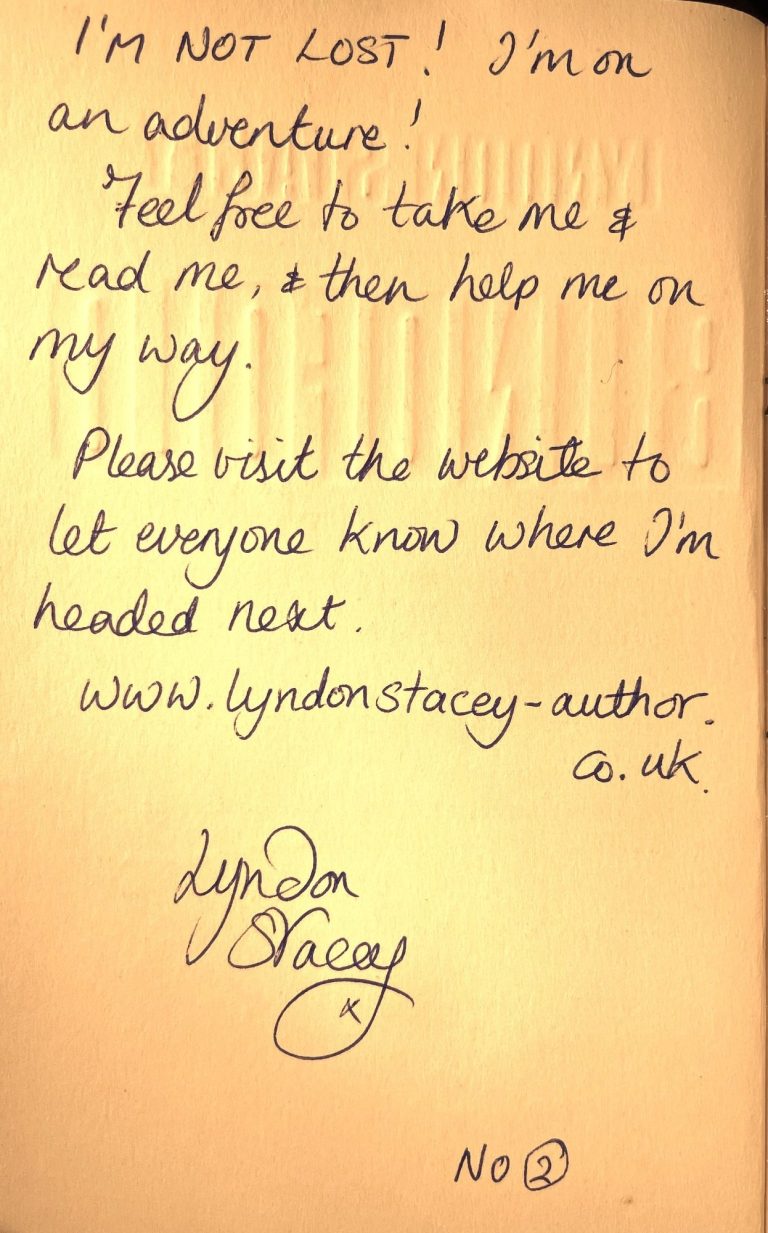 I'M NOT LOST! I'm on
an adventure!
Feel free to take me &
read me, & then help me on
my way.
Please visit the website to
let everyone know where I'm
headed next.
www.lyndonstacey-author.
co.uk.
Lyndon
Stacey
x
NO 2